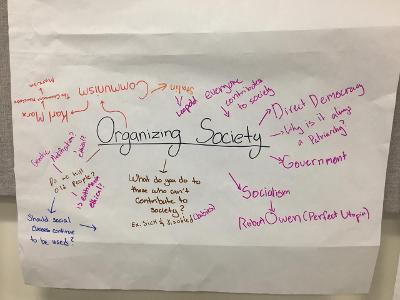 Organizing Society
Communism
Stalin
Leopold
Karl Marx
The Communist Manifesto
Marxism
everyone
contributes
to society
Direct Democracy
Why is it always
a Patriarchy?
Government
Socialism
Robert Owen (Perfect Utopia)
What do you do to
those who can't
contribute to
society?
Ex. Sick & disabled (babies)
Genetic
Modification?
Do we kill
old people?
Is euthanasia
ethical?
Should social
classes continue
to be used?